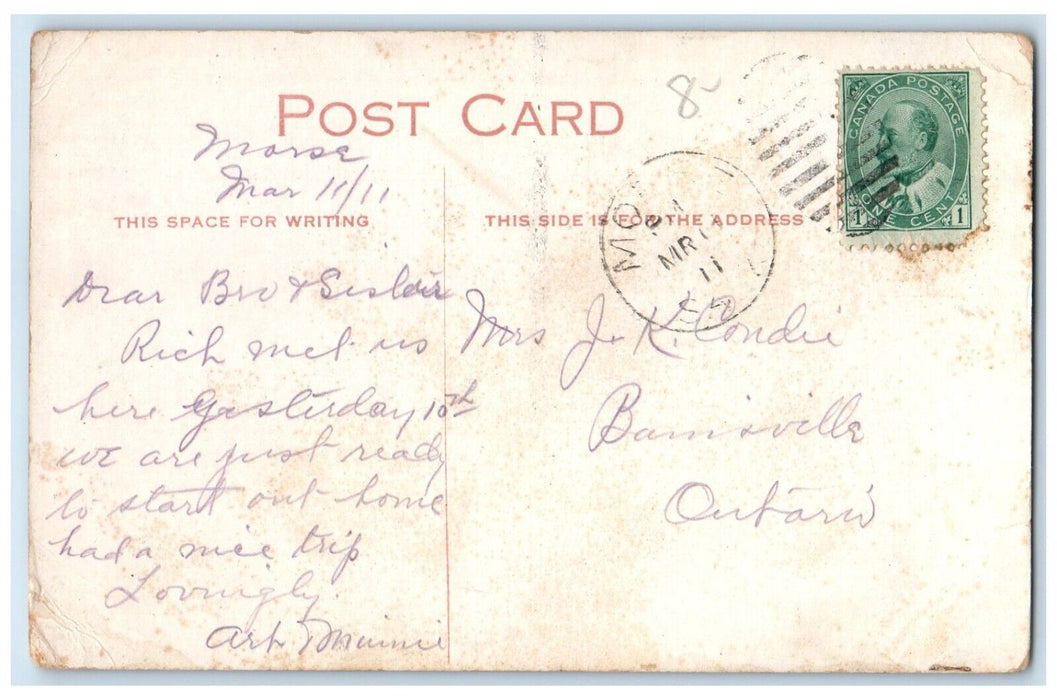 POST CARD
8-
Morse
Mar 11/11
THIS SPACE FOR WRITING
THIS SIDE IS FOR THE ADDRESS
CANADA POSTAGE
1 ONE CENT 1
MO
PM
MR 1
11
Dear Bro & Sister
Rich met us
here Yasterday 10th
we are just ready
to start out home
had a nice trip
Lovingly.
Art Minnie
Mrs J. K. Condie
Barnsville
Ontario